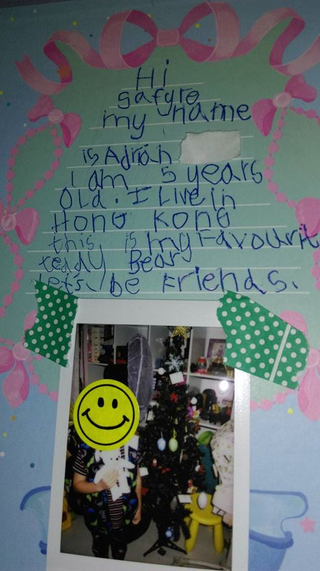 Hi
Safyre
my name
is Adrian
I am 5 years
Old. I Live in
HONG KONG
this is my Favourit
teddy Bear
let's be Friends.